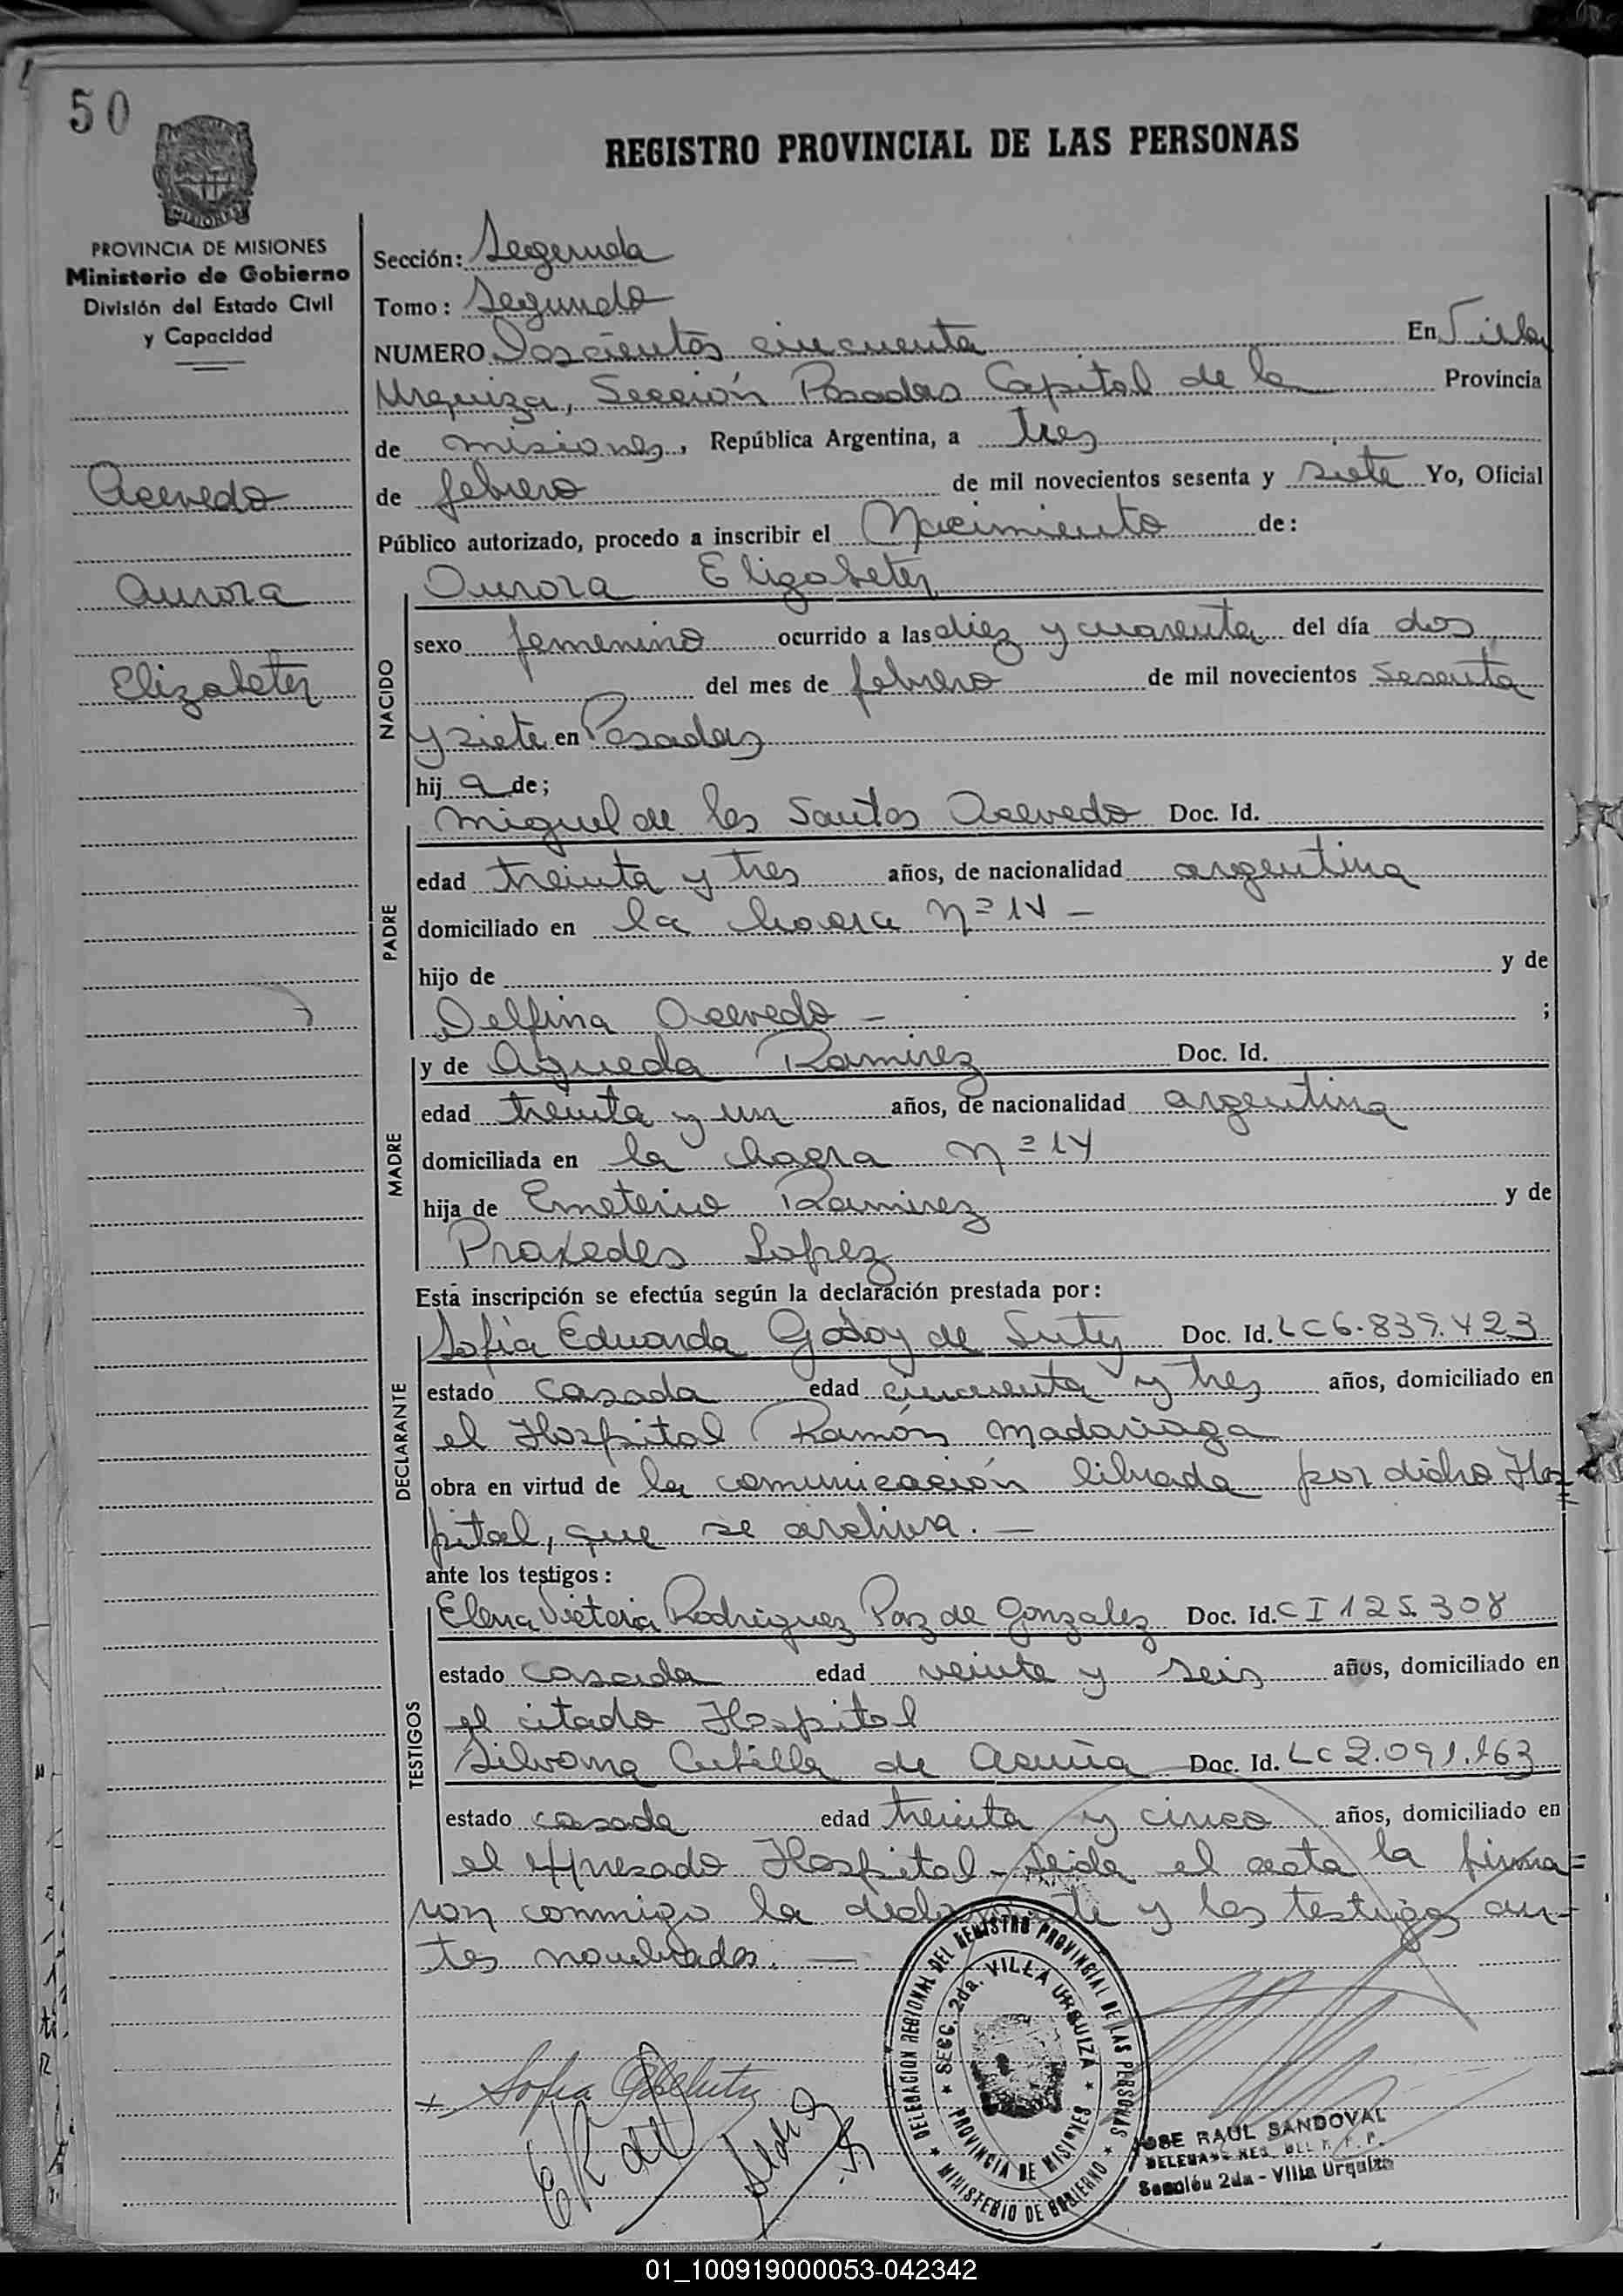 50
REGISTRO PROVINCIAL DE LAS PERSONAS
PROVINCIA DE MISIONES
Ministerio de Gobierno
División del Estado Civil
y Capacidad
Acevedo
Aurora
Elizabeter
Sección: Segunda
Tomo: Segundo
NUMERO Doscientos cincuenta En Villa
Urquiza, Sección Posadas Capital de la Provincia
de misiones, República Argentina, a tres
de febrero de mil novecientos sesenta y siete Yo, Oficial
Público autorizado, procedo a inscribir el Nacimiento de:
NACIDO
Aurora Elizabeter
sexo femenino ocurrido a las diez y cuarenta del día dos
del mes de febrero de mil novecientos sesenta
y siete en Posadas
hij a de;
PADRE
Miguel de los Santos Acevedo Doc. Id.
edad treinta y tres años, de nacionalidad argentina
domiciliado en la chacra Nº 14 -
hijo de y de
Delfina Acevedo - ;
MADRE
y de Agueda Ramirez Doc. Id.
edad treinta y un años, de nacionalidad argentina
domiciliada en la chacra nº 14
hija de Emeterio Ramirez y de
Praxedes Lopez
Esta inscripción se efectúa según la declaración prestada por:
DECLARANTE
Sofia Eduarda Godoy de Suty Doc. Id. LC 6.839.423
estado casada edad cincuenta y tres años, domiciliado en
el Hospital Ramón Madariaga
obra en virtud de la comunicación librada por dicho Hos=
pital, que se archiva. -
ante los testigos:
TESTIGOS
Elena Victoria Rodriguez Paz de Gonzalez Doc. Id. CI 125.308
estado casada edad veinte y seis años, domiciliado en
el citado Hospital
Silvana de Acuña Doc. Id. LC 2.091.163
estado casada edad treinta y cinco años, domiciliado en
el expresado Hospital - Leida el acta la firma=
ron conmigo la declarante y los testigos an-
tes nombrados. -
Sofia
DELEGACION REGIONAL DEL REGISTRO PROVINCIAL DE LAS PERSONAS
SECC. 2da. VILLA URQUIZA
PROVINCIA DE MISIONES
MINISTERIO DE GOBIERNO
JOSE RAUL SANDOVAL
Sección 2da - Villa Urquiza
01_100919000053-042342